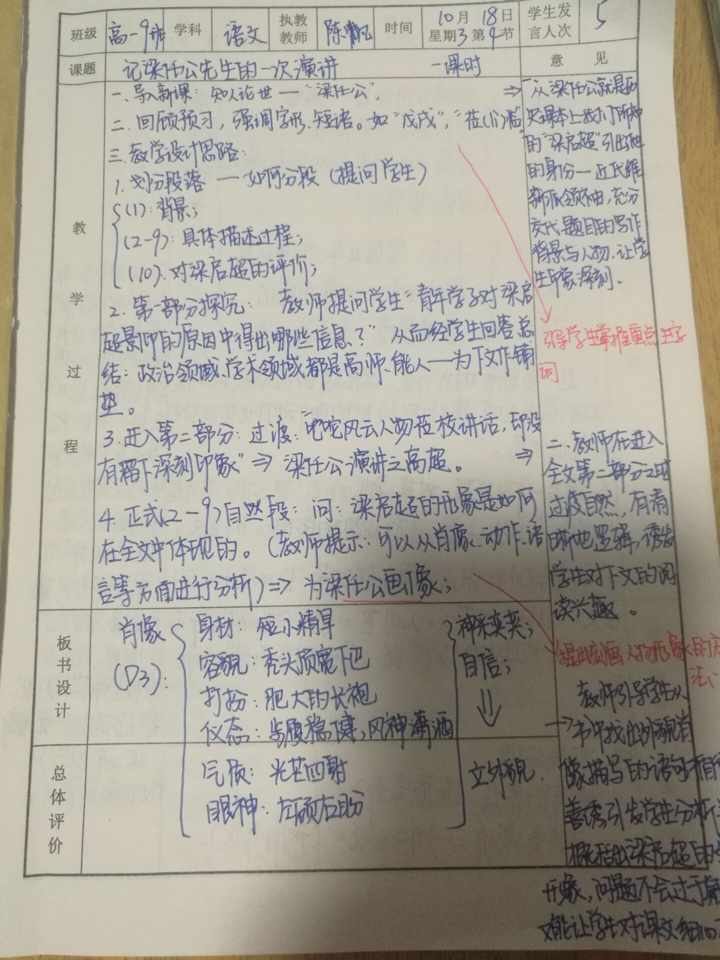 班级 高一9班 学科 语文 执教教师 陈 时间 10月18日 星期3 第4节 学生发言人次 5
课题 记梁任公先生的一次演讲 一课时 意见
教学过程
一、导入新课：知人论世——“梁任公”。
二、回顾预习，强调字形、短语。如“戊戌”，
三、教学设计思路：
1. 划分段落——如何分段（提问学生）
(1)：背景；
(2-9)：具体描述过程；
(10)：对梁启超的评价；
2. 第一部分探究：教师提问学生“青年学子对梁启
超景仰的原因中得出哪些信息？”从而经学生回答总
结：政治领域、学术领域都是高师、能人——为下文作铺
垫。
3. 进入第二部分：过渡：“叱咤风云人物莅校讲话，即没
有留下深刻印象”⇒梁任公演讲之高超。
4. 正式(2-9)自然段：问：梁启超的形象是如何
在全文中体现的。（教师提示：可以从肖像、动作、语
言等方面进行分析）⇒为梁任公画像；
⇒“从梁任公就是历
史课本上我们所知
的“梁启超”引出他
的身份——近代维
新派领袖，充分
交代题目的写作
背景与人物，让学
生印象深刻。
引导学生掌握重点生字
词
⇒二、教师在进入
全文第二部分之时
过渡自然，有清
晰地逻辑，诱发
学生对下文的阅
读兴趣。
提出刻画人物形象的方
法
教师引导学生从
→书中找出外貌肖
像描写的语句
善诱引发学生分析
概括出梁启超的
形象，问题不会过于
又能让学生对课文细
板书设计
肖像
(P3)：
身材：短小精悍
容貌：秃头顶宽下巴
打扮：肥大的长袍
仪态：步履稳健、风神潇洒
气质：光芒四射
眼神：左顾右盼
神采奕奕；
自信；
⇓
立外貌.
总体评价